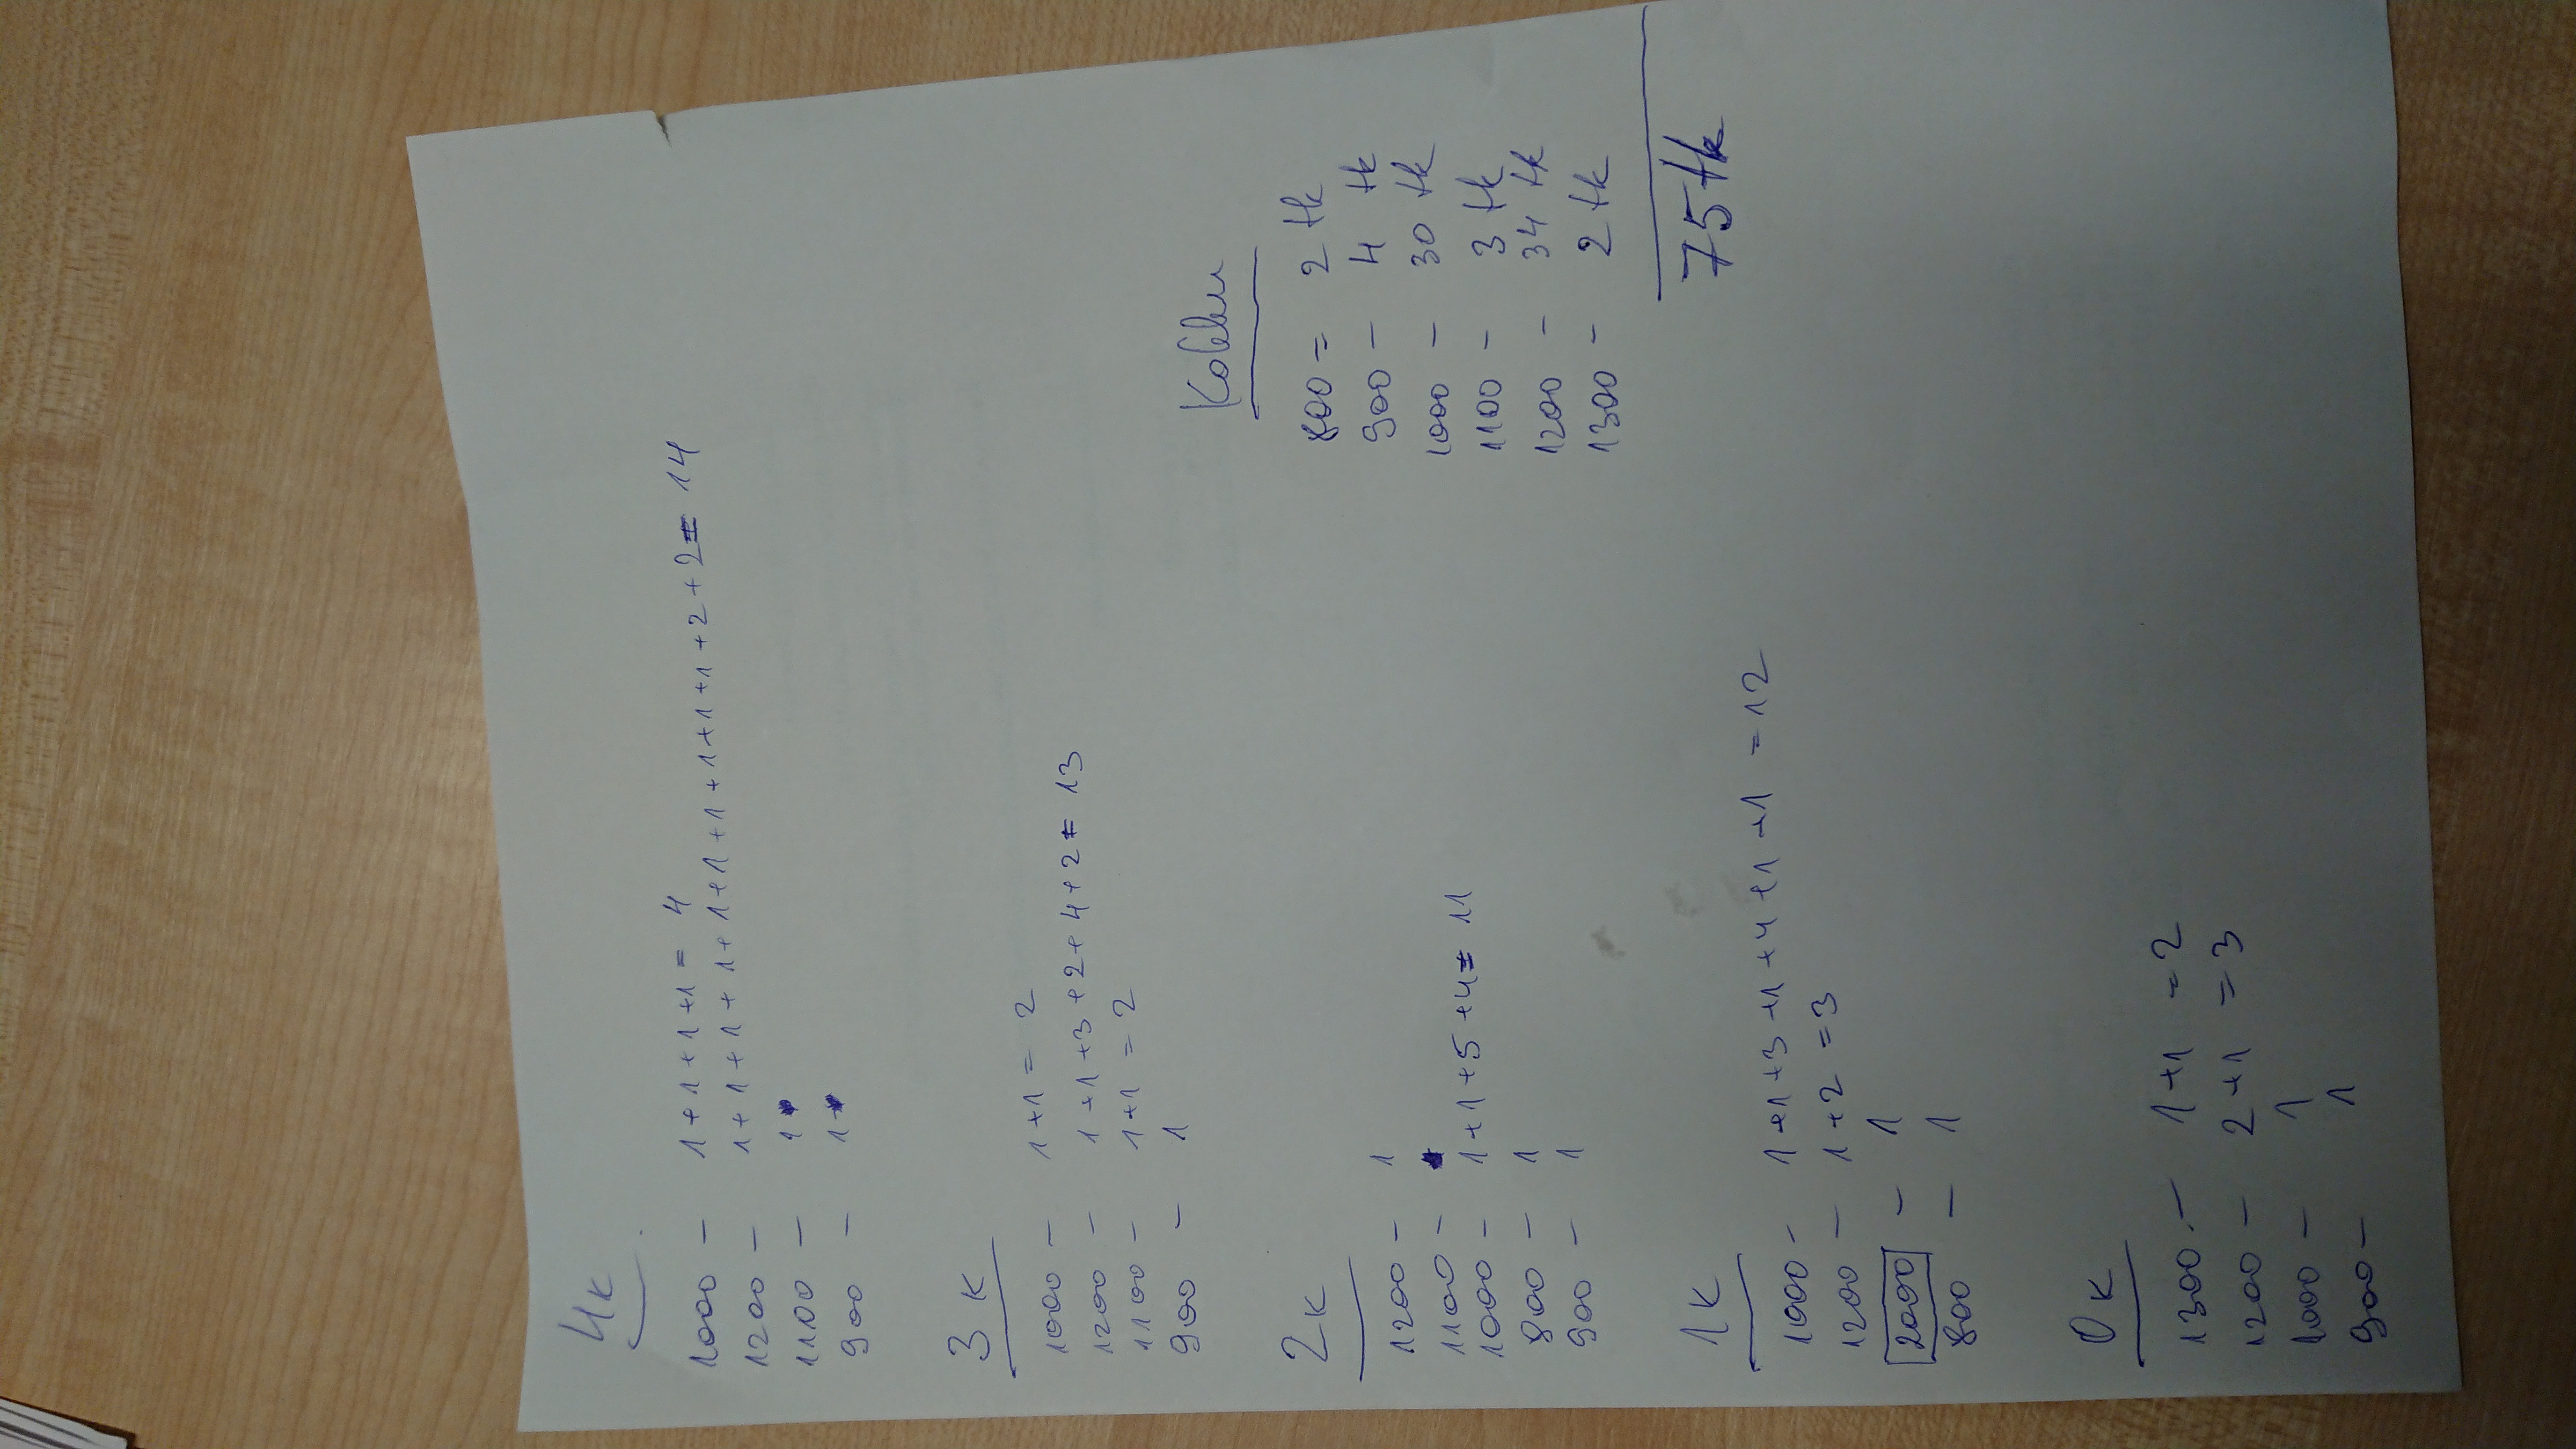 4k
1000 – 1+1+1+1= 4
1200 – 1+1+1+1+1+1+1+1+1+1+2+2= 14
1100 – 1
900 – 1
3 k
1000 – 1+1= 2
1200 – 1+1+3+2+4+2= 13
1100 – 1+1= 2
900 – 1
2k
1200 – 1
1100 –
1000 – 1+1+5+4= 11
800 – 1
900 – 1
1k
1000 – 1+1+3+1+4+1+1 =12
1200 – 1+2=3
2000 – 1
800 – 1
0k
1300.– 1+1 =2
1200 – 2+1 =3
1000 – 1
900 – 1
Kokku
800 = 2 tk
900 – 4 tk
1000 – 30 tk
1100 – 3 tk
1200 – 34 tk
1300 – 2 tk
75 tk